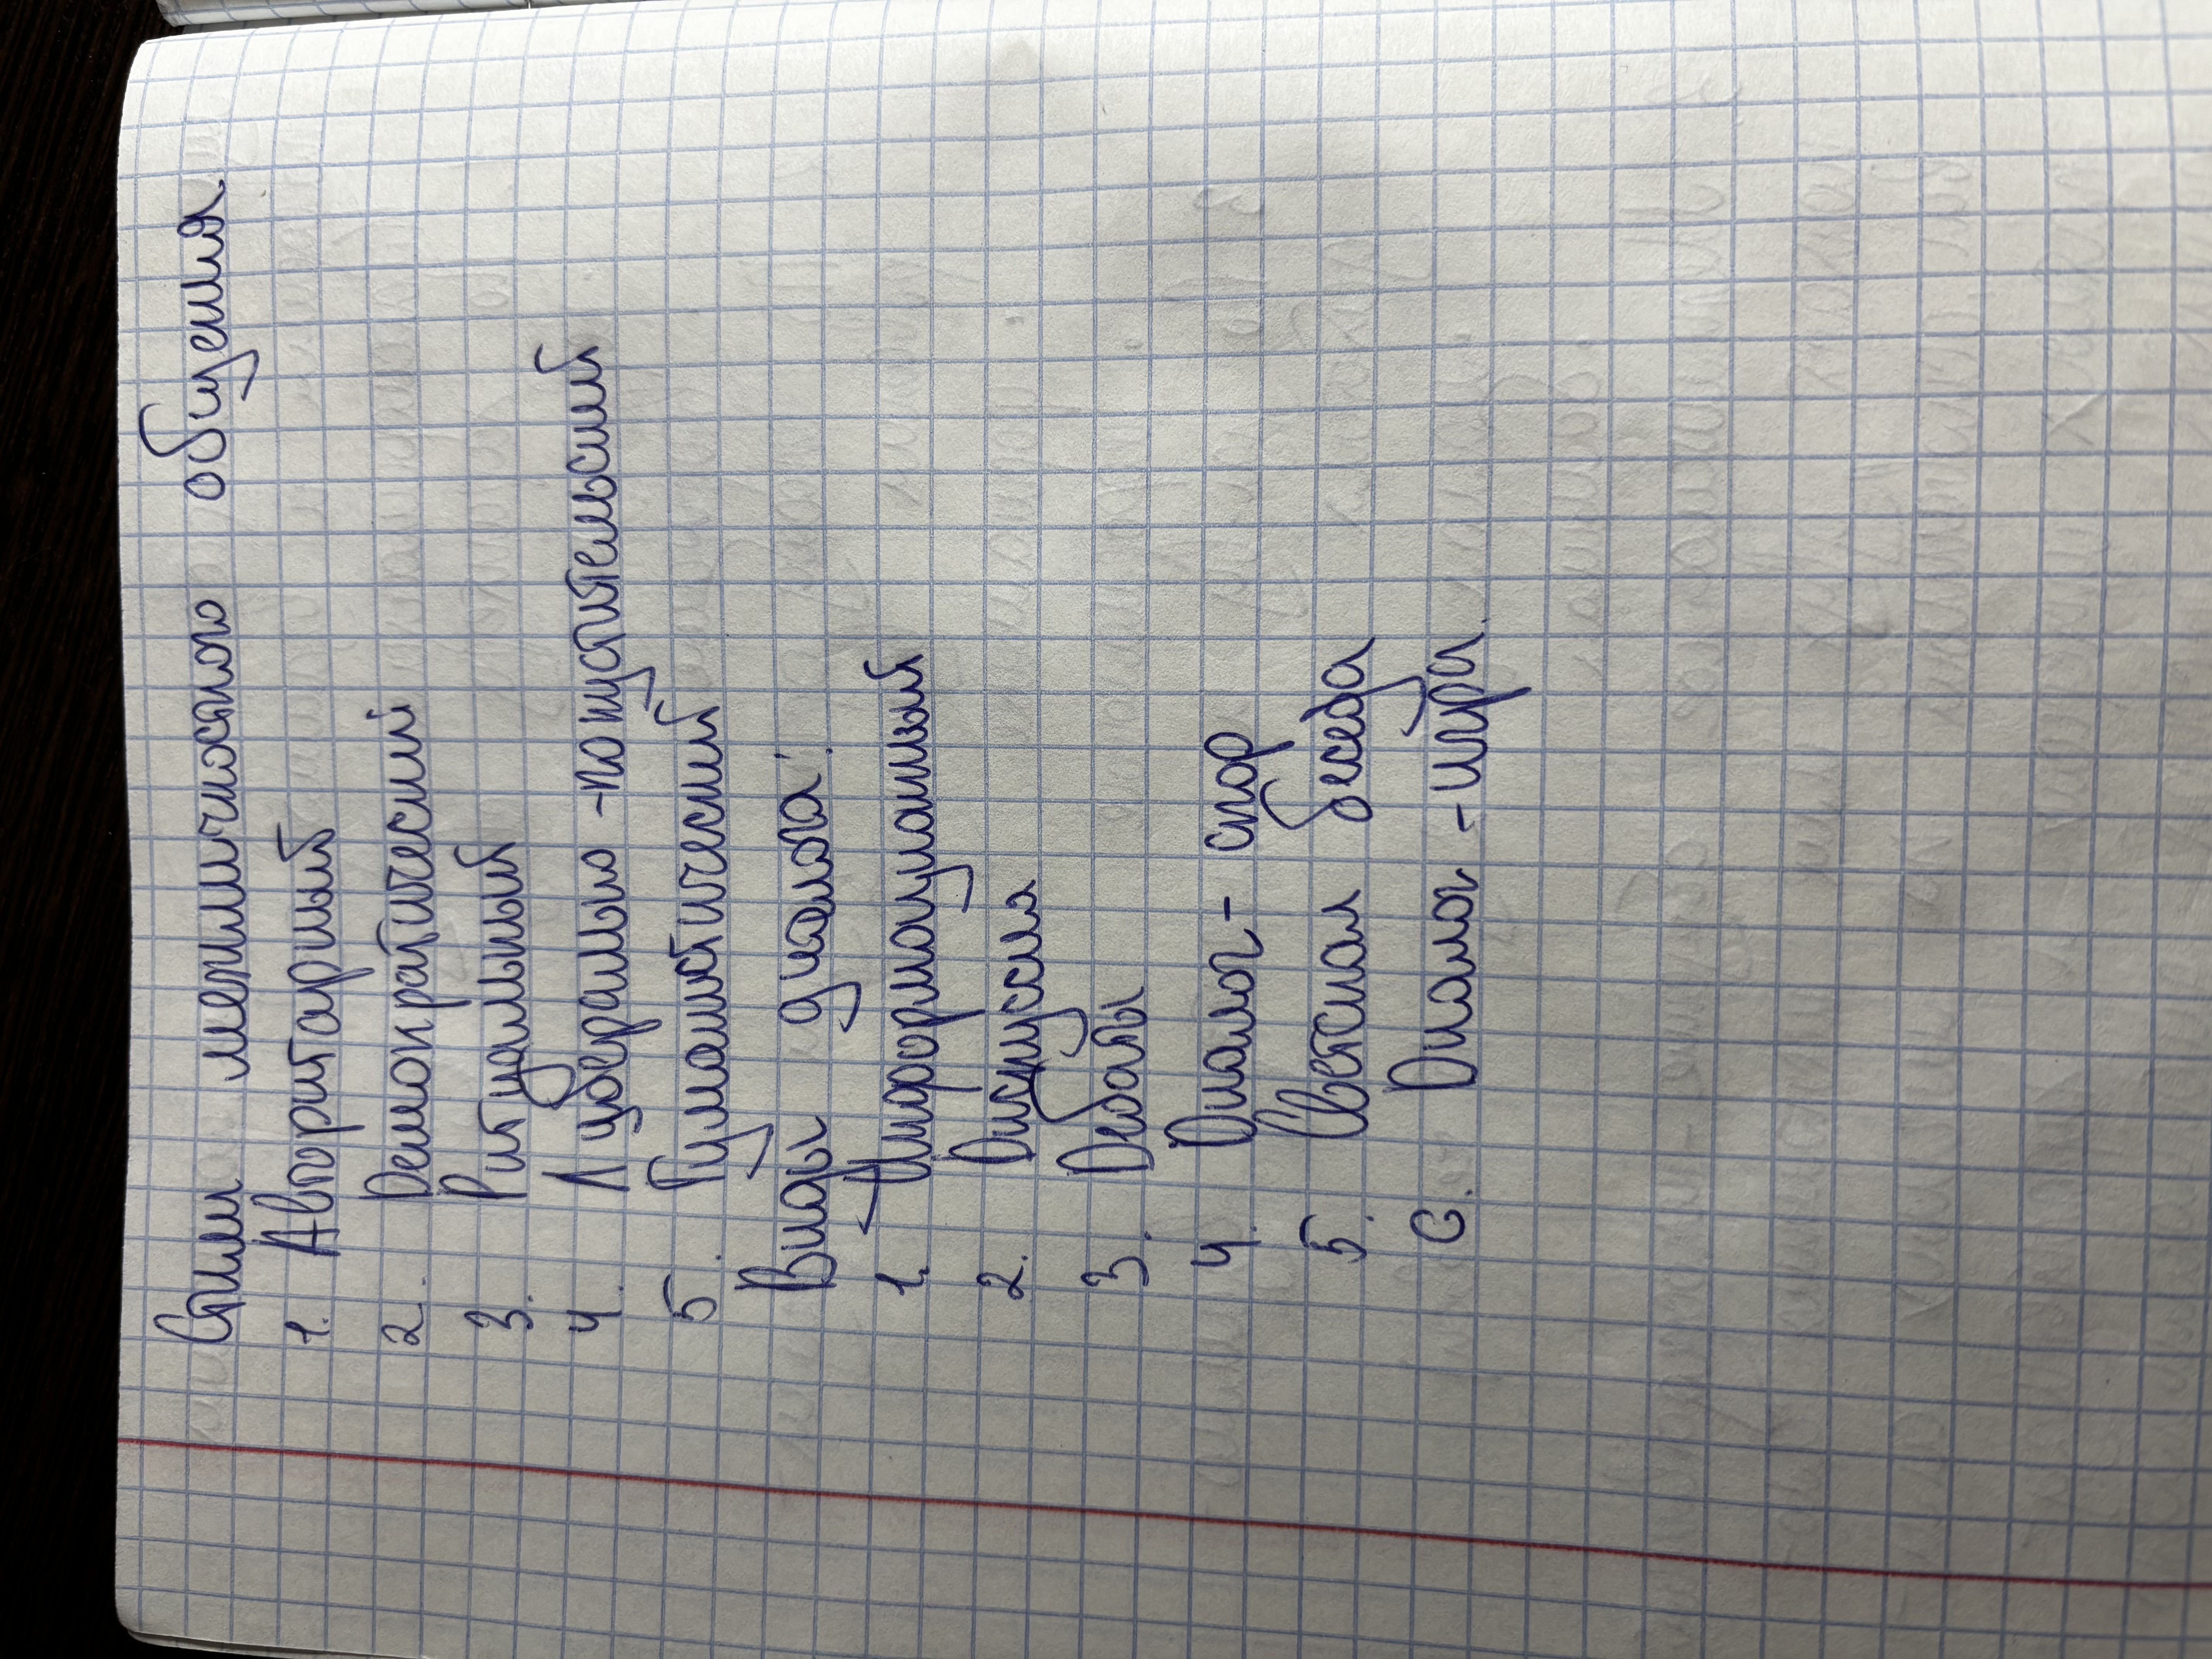 Стили межличносного общения
1. Авторитарный
2. Демократический
3. Ритуальный
4. Либерально-попустительский
5. Гуманистический
Виды диалога:
1. Информационный
2. Дискуссия
3. Дебаты
4. Диалог - спор
5. Светская беседа
6. Диалог - игра.